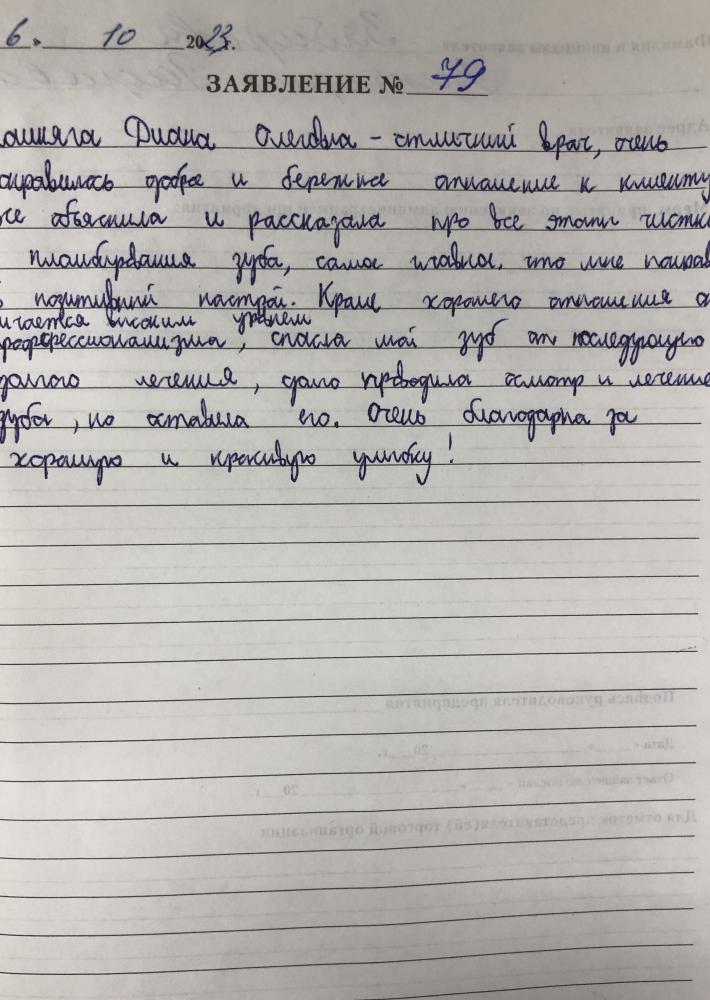 6 » 10 2023г.
ЗАЯВЛЕНИЕ № 79
Диана Олеговна - отличний врач, очень
онравилось добрае и бережнае отношение к клиенту
се объяснила и рассказала про все этапи чистки
пломбирования зуба, самое главное, что мне понрав
позитивний настрой. Краме хорошего отношения о
ичается високим уравнем
професcионализма, спасла май зуб от последующего
долгого лечения, долго проводила осмотр и лечение
зуба, но оставила его. Очень благодарна за
хорошую и красивую улибку!